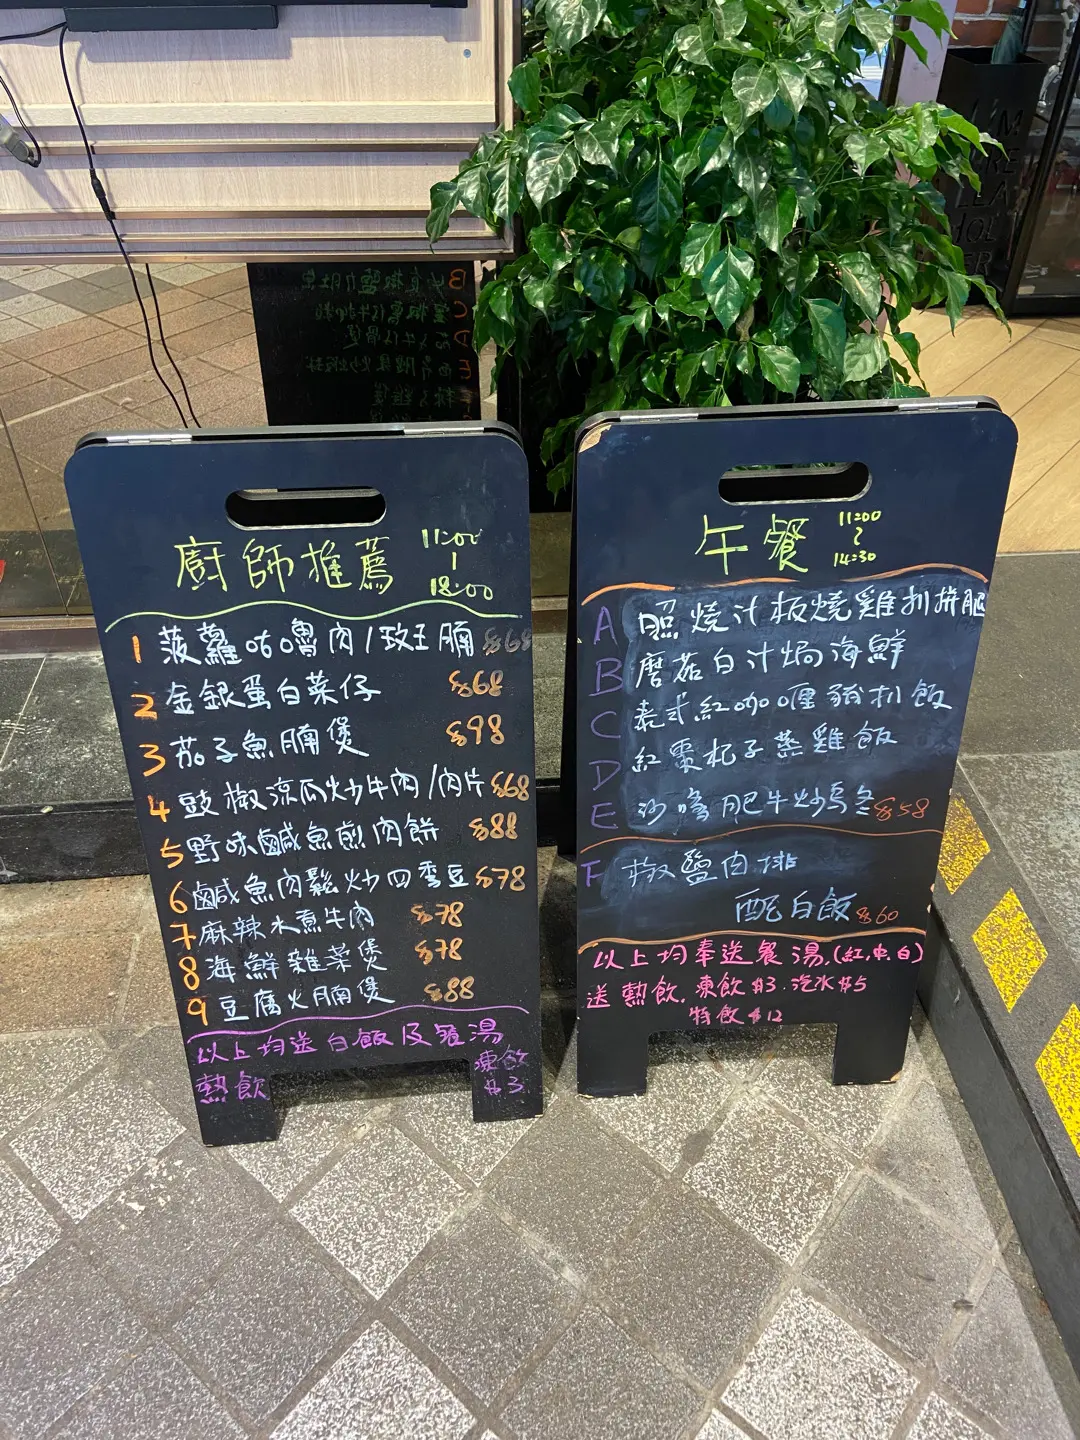 廚師推薦 11:00
|
18:00
1 菠蘿咕嚕肉/玫王腩 $68
2 金銀蛋白菜仔 $68
3 茄子魚腩煲 $98
4 豉椒涼瓜炒牛肉/肉片 $68
5 野味鹹魚煎肉餅 $88
6 鹹魚肉鬆炒四季豆 $78
7 麻辣水煮牛肉 $78
8 海鮮雜菜煲 $78
9 豆腐火腩煲 $88
以上均送白飯及餐湯
熱飲 凍飲
$3
午餐 11:00
~
14:30
A 照燒汁板燒雞扒拼腸
B 磨菇白汁焗海鮮
C 泰式紅咖喱豬扒飯
D 紅棗杞子蒸雞飯
E 沙嗲肥牛炒烏冬 $58
F 椒鹽肉排
配白飯 $60
以上均奉送餐湯.(紅.中.白)
送熱飲. 凍飲$3. 汽水$5
特飲$12
B
C
D
E
I'M